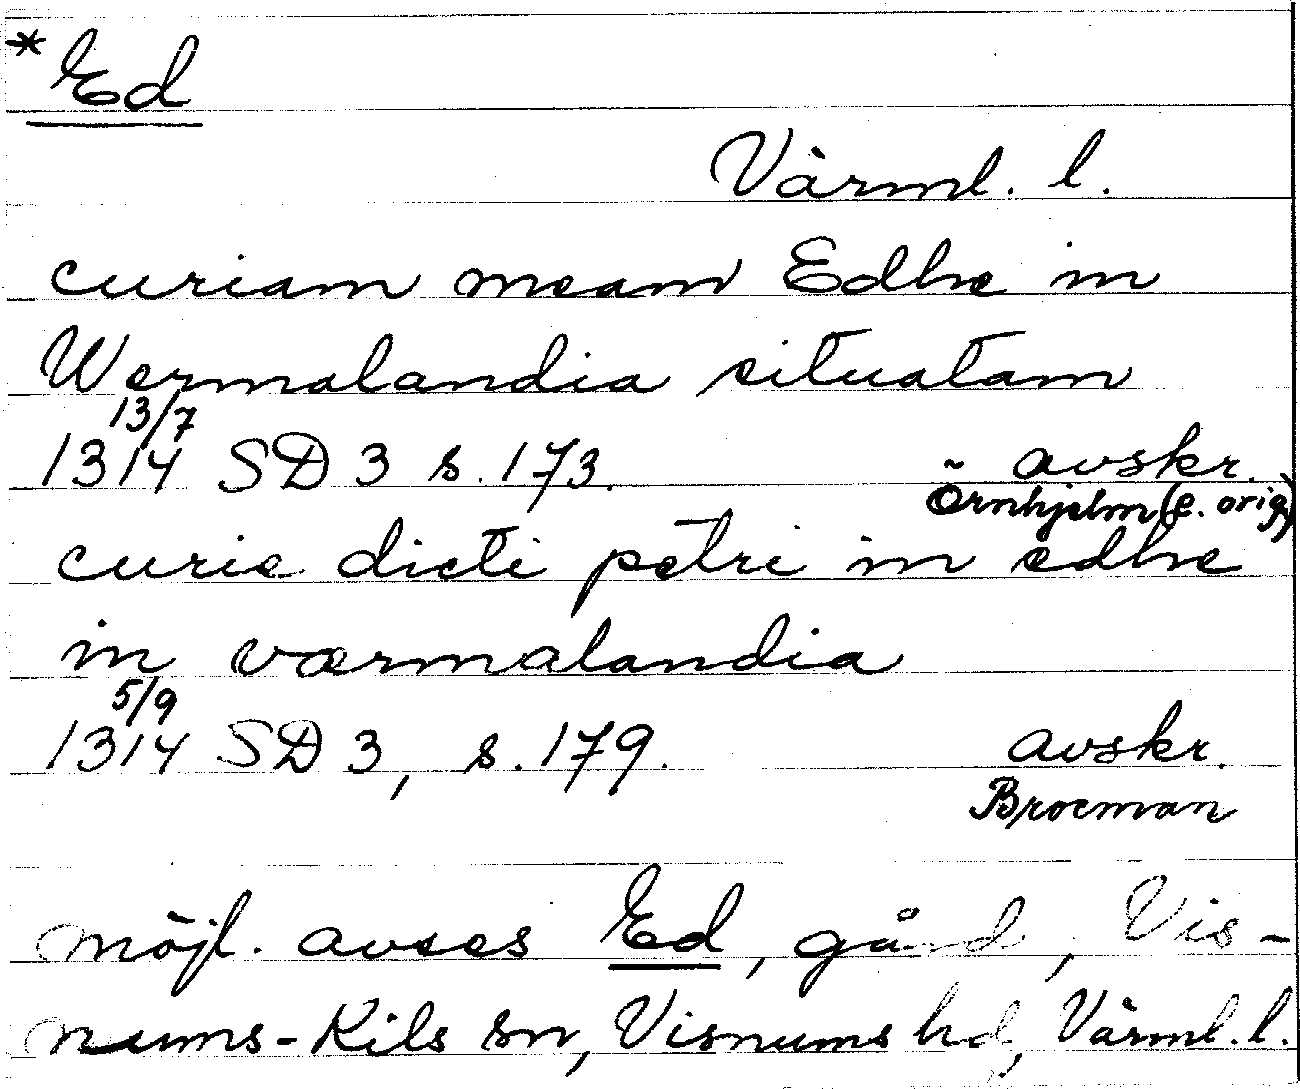 *Ed
Värml. l.
curiam meam Edhe in
Wermalandia situatam
13/7
1314 SD 3 s. 173. avskr.
Örnhjelm (e. orig)
curie dicti petri in edhe
in værmalandia
5/9
1314 SD 3, s. 179. avskr.
Brocman
möjl. avses Ed, gård, Vis-
nums-Kils sn, Visnums hd, Värml. l.